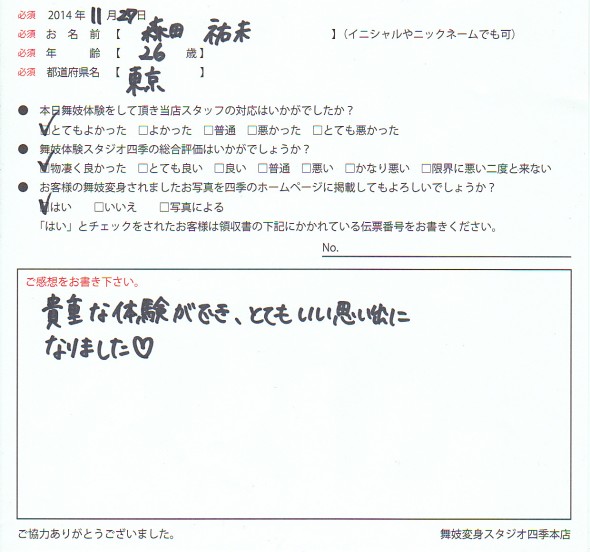 必須 2014年 11月29日
必須 お名前【 森田 祐未 】(イニシャルやニックネームでも可)
必須 年齢【 26 歳】
必須 都道府県名【 東京 】
● 本日舞妓体験をして頂き当店スタッフの対応はいかがでしたか?
☑とてもよかった □よかった □普通 □悪かった □とても悪かった
● 舞妓体験スタジオ四季の総合評価はいかがでしょうか?
☑物凄く良かった □とても良い □良い □普通 □悪い □かなり悪い □限界に悪い二度と来ない
● お客様の舞妓変身されましたお写真を四季のホームページに掲載してもよろしいでしょうか?
☑はい □いいえ □写真による
「はい」とチェックをされたお客様は領収書の下記にかかれている伝票番号をお書きください。
No.
ご感想をお書き下さい。
貴重な体験ができ、とてもいい思い出に
なりました♡
ご協力ありがとうございました。 舞妓変身スタジオ四季本店